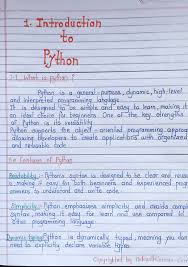 1. Introduction
to
Python
1.1 What is python?
Python is a general-purpose, dynamic, high-level
and interpreted programming language
It is designed to be simple and easy to learn, making it
an ideal choice for beginners. One of the key strengths
of Python is its versatility.
Python supports the object-oriented programming approach
allowing developers to create applications with organized
and reusable code.
Features of Python
Readability:- Python's syntax is designed to be clear and
making it easy for both beginners and experienced
to understand and write code.
Simplicity:- Python emphasizes simplicity and avoids
syntax, making it easy to learn and use compared to
other programming language.
Dynamic Typing:- Python is dynamically typed, meaning you don
need to explicitly declare variable
Copyrighted by